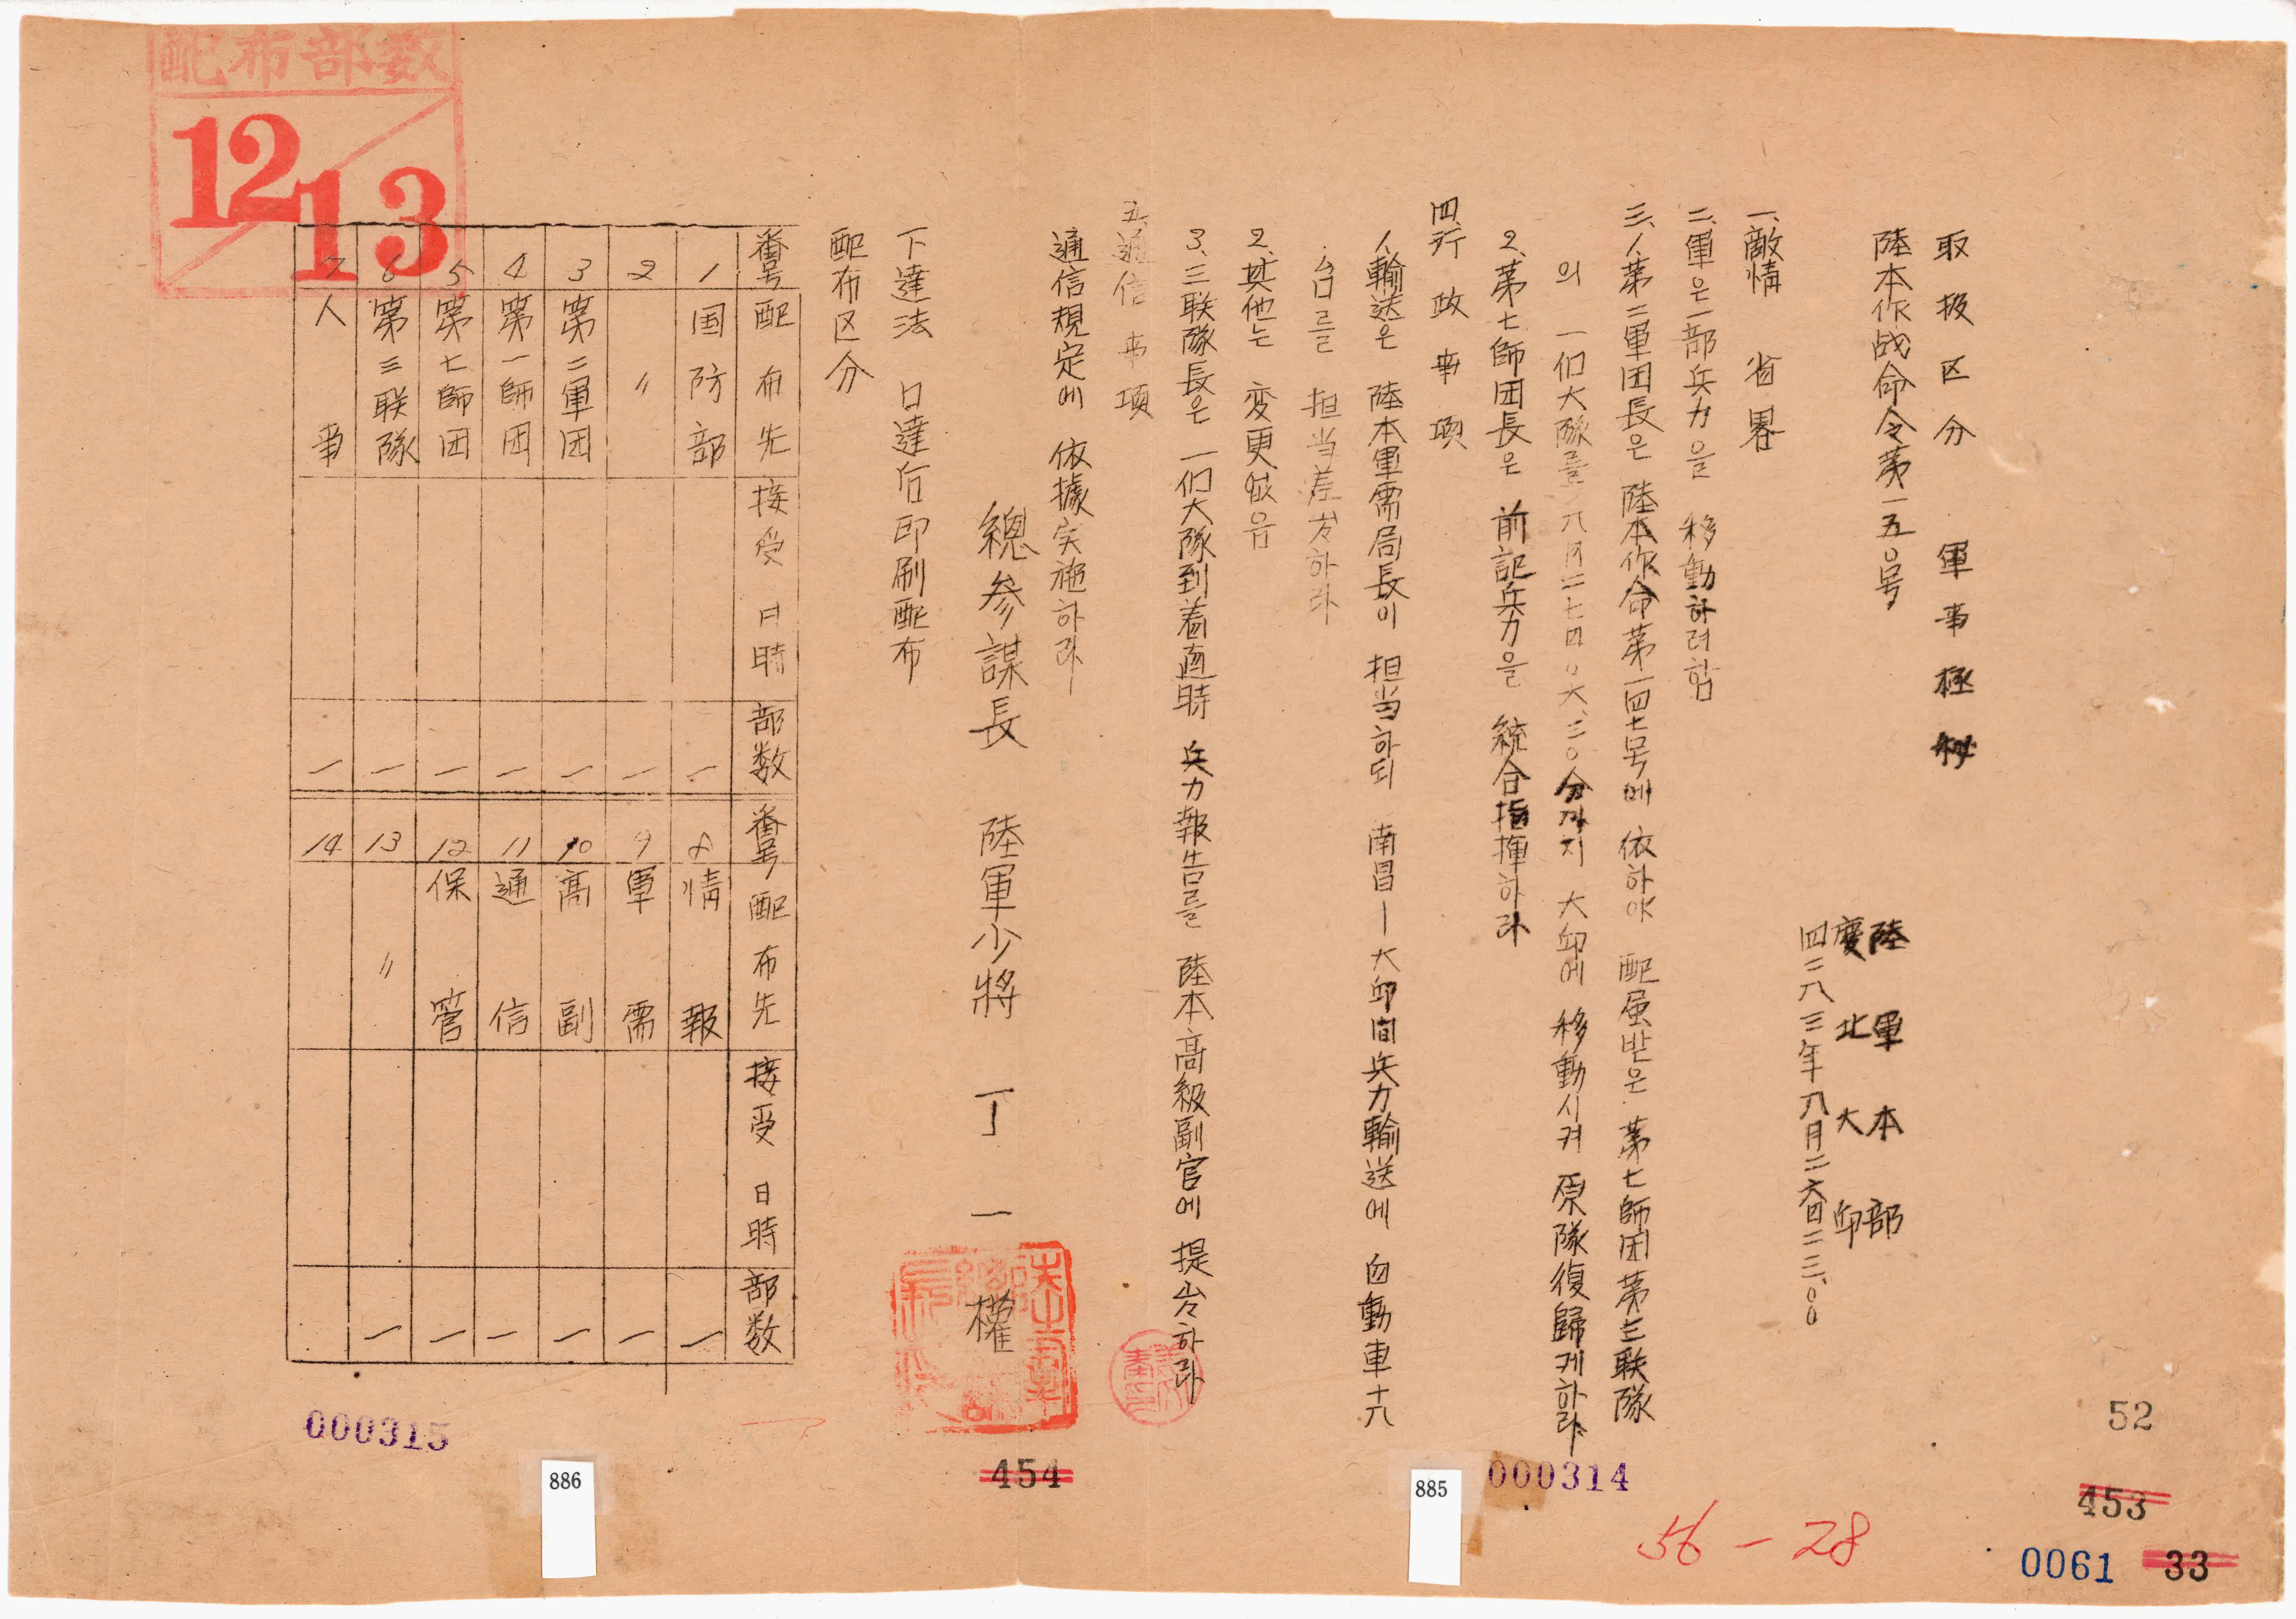 取扱区分 軍事極秘
陸本作战命令第一五〇号
陸軍本部
慶北大邱
四二八三年八月二六日二三、〇〇
一、敵情 省畧
二、軍은 一部兵力을 移動하려함
三、1、第二軍団長은 陸本作命第一四七号에 依하야 配属받은 第七師団第三联隊
의 一们大隊를 八月二七日〇六、三〇分까지 大邱에 移動시켜 原隊復歸케하라
2、第七師団長은 前記兵力을 統合指揮하라
四、行政事項
1、輸送은 陸本軍需局長이 担当하되 南昌―大邱間兵力輸送에 自動車十八
台를 担当差出하라
2、其他는 変更없음
3、三联隊長은 一们大隊到着直時 兵力報告를 陸本高級副官에 提出하라
五、通信事項
通信規定에 依據实施하라
總参謀長 陸軍少將 丁一權
下達法 口達后印刷配布
配布区分
番号 配布先 接受日時 部数 番号 配布先 接受日時 部数
1 国防部 一 8 情報 一
2 〃 一 9 軍需 一
3 第二軍团 一 10 高副 一
4 第一師团 一 11 通信 一
5 第七師团 一 12 保管 一
6 第三联隊 一 13 〃 一
7 人事 一 14
配布部数
12
13
000315
886
454
885
000314
56-28
52
453
0061
33